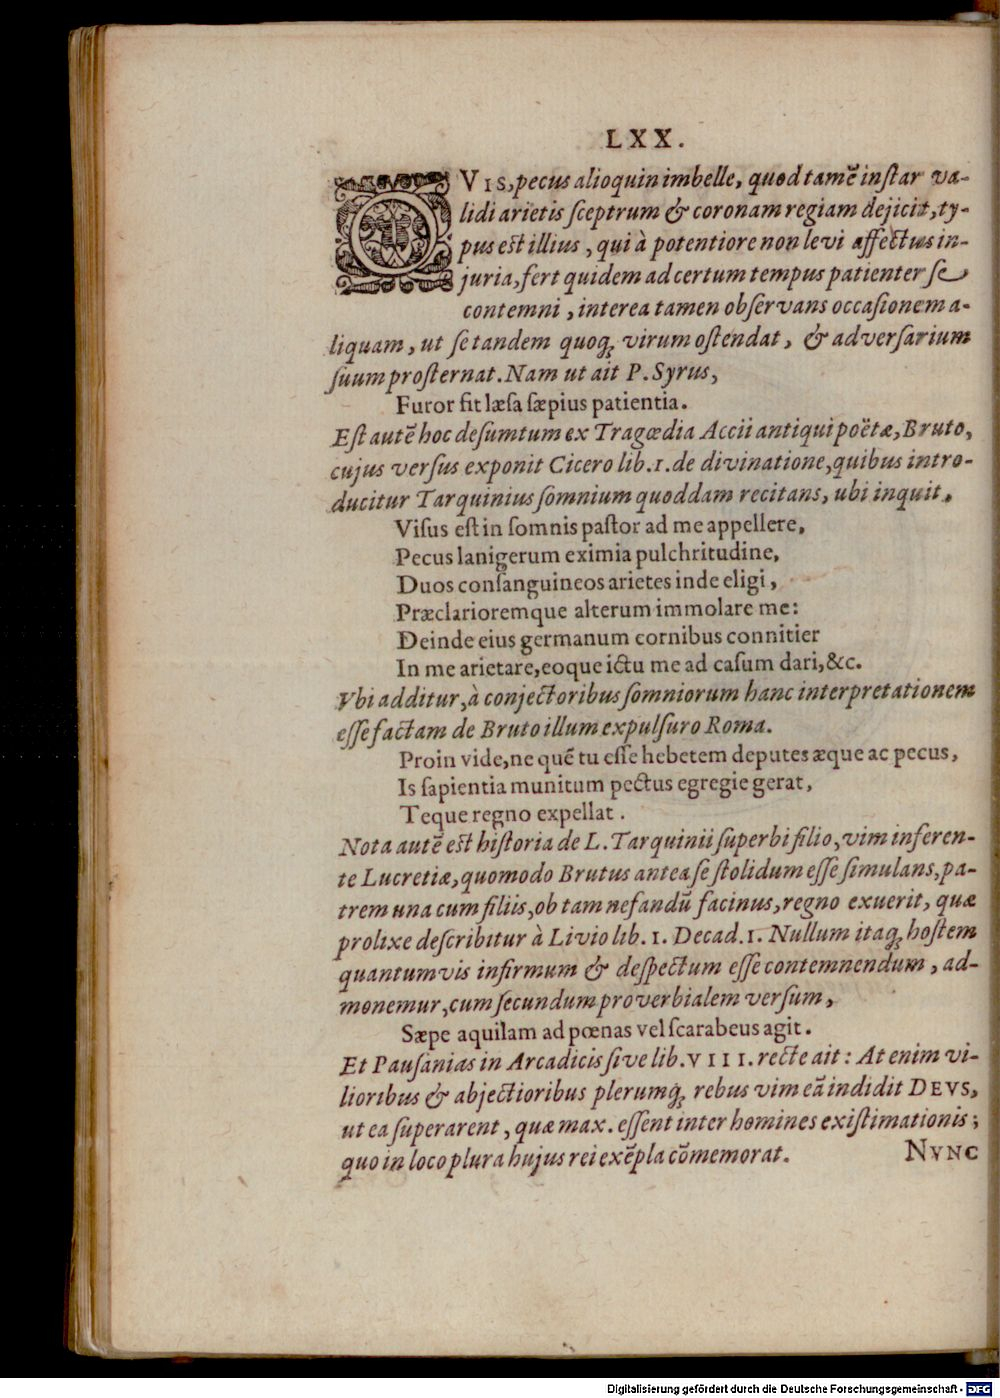 LXX.
OVIS, pecus alioquin imbelle, quod tamẽ instar va-
lidi arietis sceptrum & coronam regiam dejicit, ty-
pus est illius, qui à potentiore non levi affectus in-
juria, fert quidem ad certum tempus patienter se
contemni, interea tamen observans occasionem a-
liquam, ut se tandem quoq; virum ostendat, & adversarium
suum prosternat. Nam ut ait P. Syrus,
Furor fit læsa sæpius patientia.
Est autẽ hoc desumtum ex Tragœdia Accii antiqui poëtæ, Bruto,
cujus versus exponit Cicero lib. 1. de divinatione, quibus intro-
ducitur Tarquinius somnium quoddam recitans, ubi inquit,
Visus est in somnis pastor ad me appellere,
Pecus lanigerum eximia pulchritudine,
Duos consanguineos arietes inde eligi,
Præclarioremque alterum immolare me:
Deinde eius germanum cornibus connitier
In me arietare, eoque ictu me ad casum dari, &c.
Vbi additur, à conjectoribus somniorum hanc interpretationem
esse factam de Bruto illum expulsuro Roma.
Proin vide, ne quẽ tu esse hebetem deputes æque ac pecus,
Is sapientia munitum pectus egregie gerat,
Teque regno expellat.
Nota autẽ est historia de L. Tarquinii superbi filio, vim inferen-
te Lucretiæ, quomodo Brutus antea se stolidum esse simulans, pa-
trem una cum filiis, ob tam nefandũ facinus, regno exuerit, quæ
prolixe describitur à Livio lib. 1. Decad. 1. Nullum itaq; hostem
quantumvis infirmum & despectum esse contemnendum, ad-
monemur, cum secundum proverbialem versum,
Sæpe aquilam ad pœnas vel scarabeus agit.
Et Pausanias in Arcadicis sive lib. VIII. recte ait: At enim vi-
lioribus & abjectioribus plerumq; rebus vim eã indidit DEVS,
ut ea superarent, quæ max. essent inter homines existimationis;
quo in loco plura hujus rei exẽpla cõmemorat. NVNC
Digitalisierung gefördert durch die Deutsche Forschungsgemeinschaft - DFG